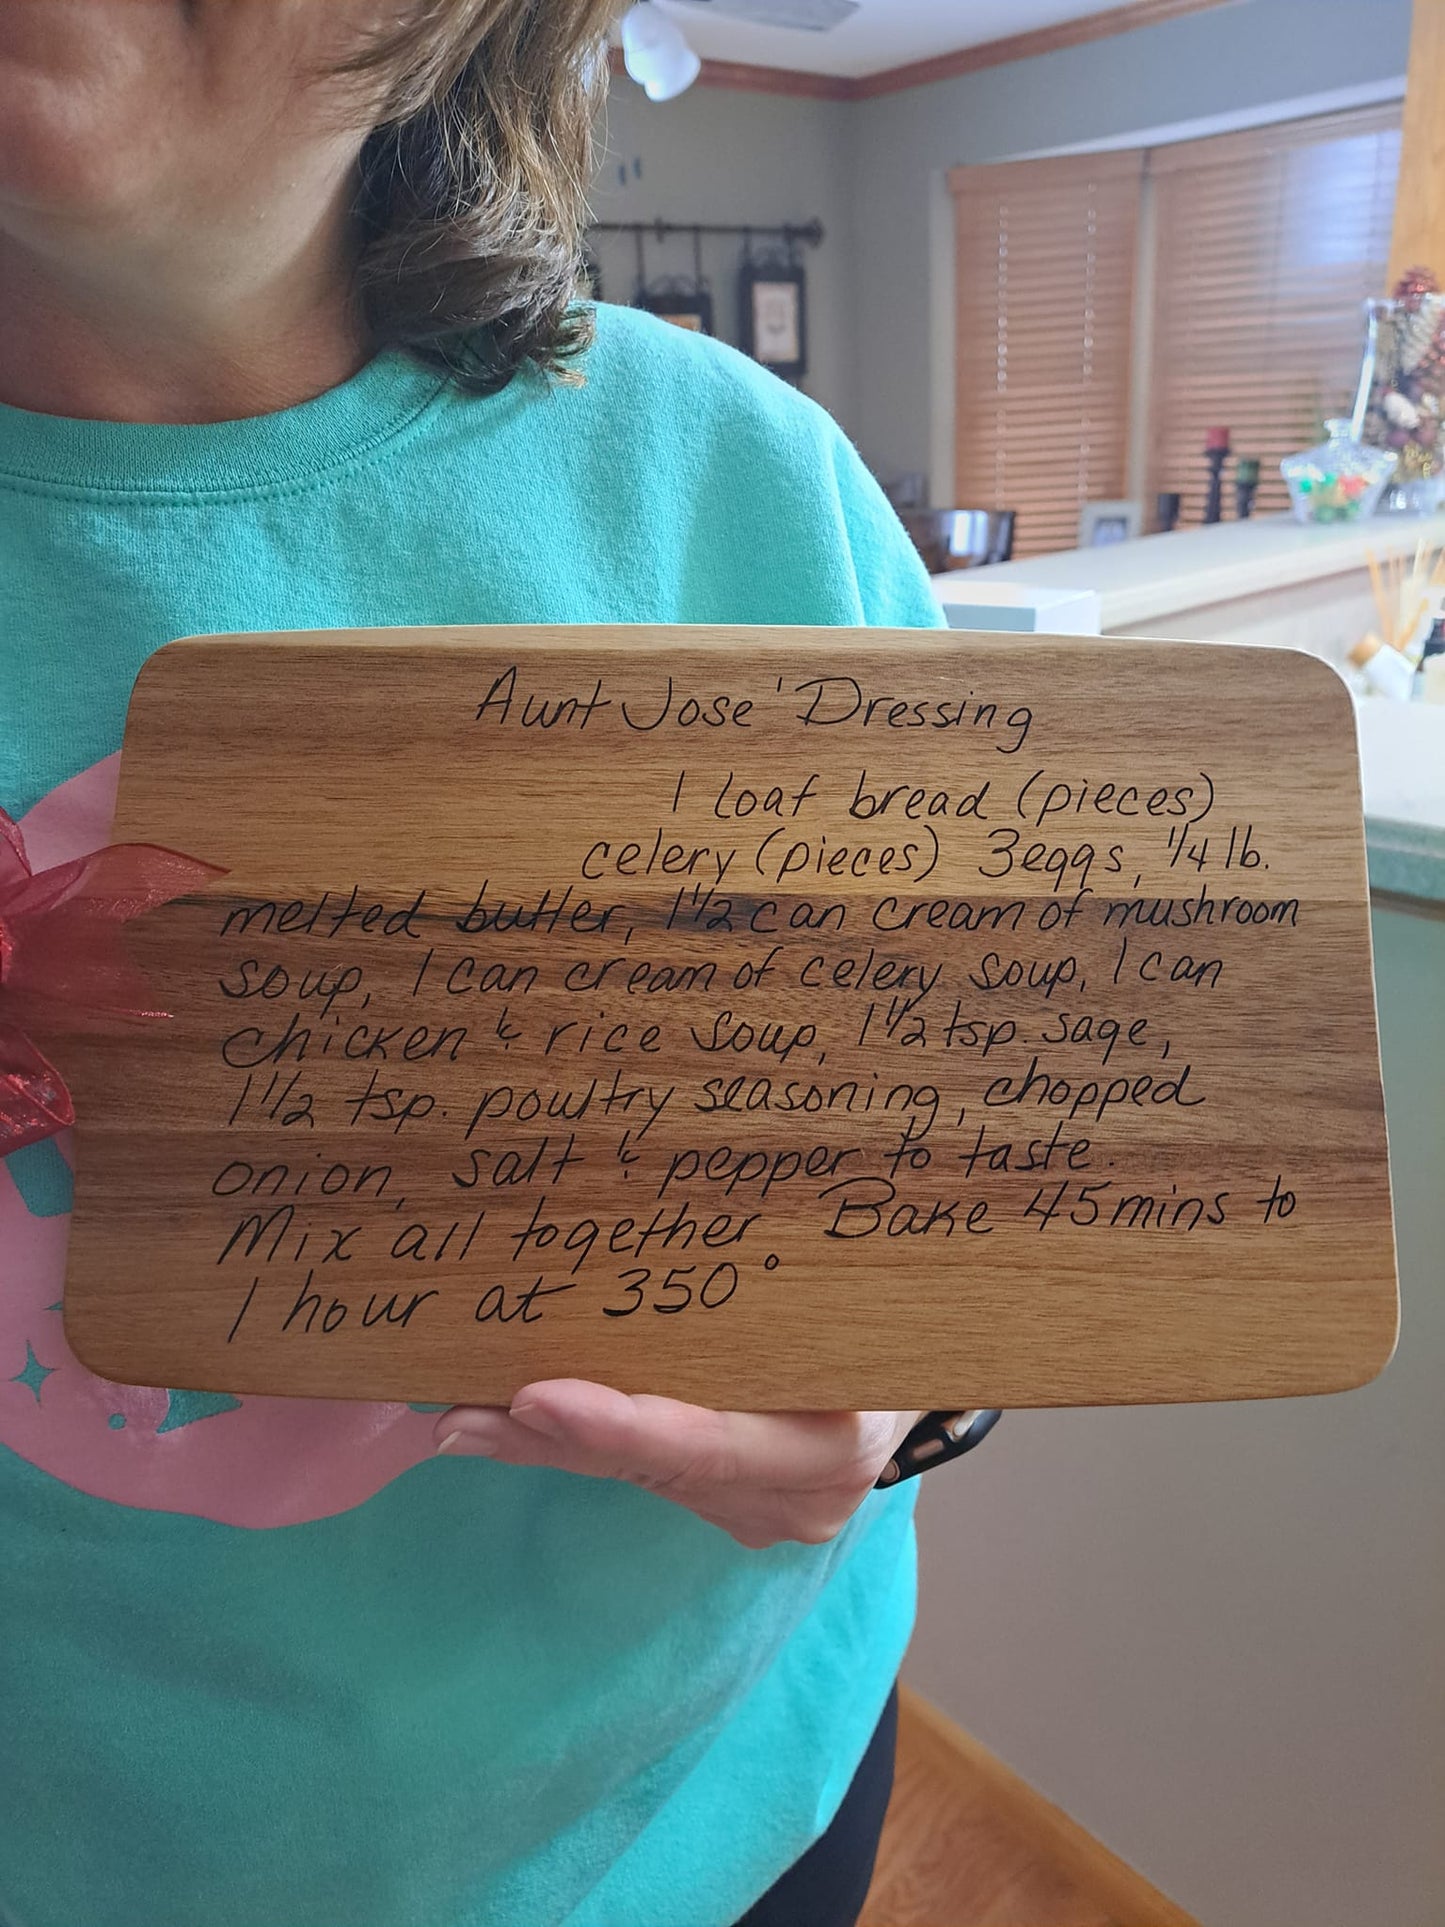 Aunt Jose' Dressing
1 loaf bread (pieces)
celery (pieces) 3eggs, 1/4 lb.
melted butter, 1 1/2 can cream of mushroom
soup, 1 can cream of celery soup, 1 can
chicken & rice soup, 1 1/2 tsp. sage,
1 1/2 tsp. poultry seasoning, chopped
onion, salt & pepper to taste.
Mix all together. Bake 45mins to
1 hour at 350°